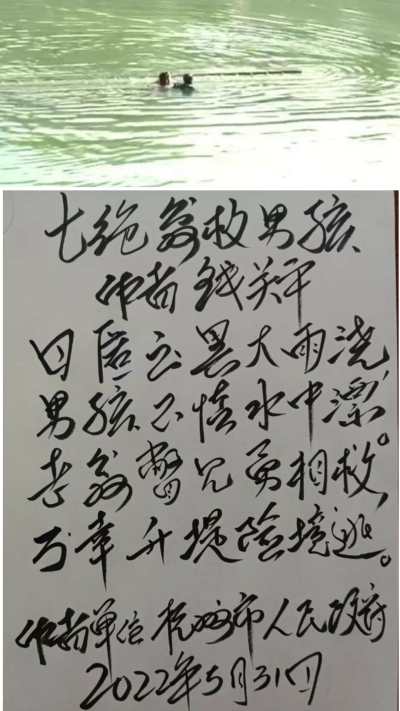 七绝 翁救男孩
作者 钱关平
日匿云黑大雨浇,
男孩不慎水中漂。
老翁瞥见勇相救,
万幸升堤险境逃。
作者单位 杭州市人民政府
2022年5月31日